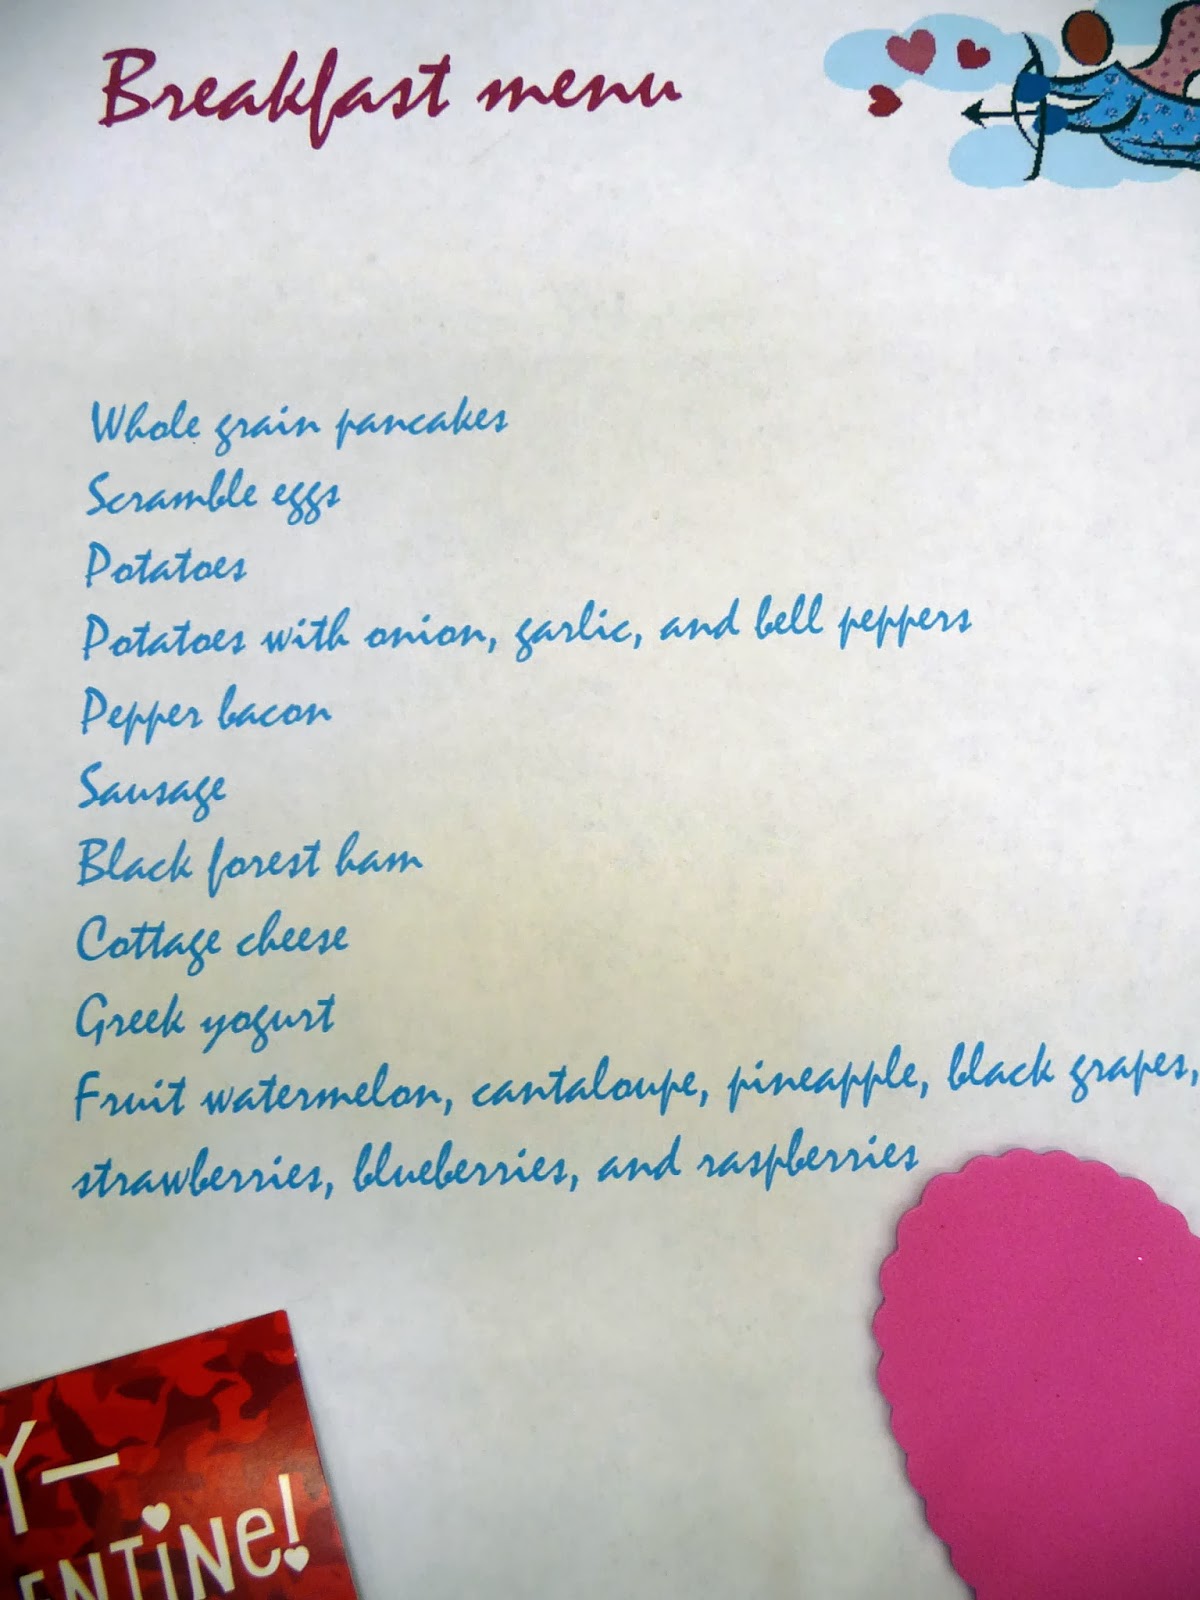 Breakfast menu
Whole grain pancakes
Scramble eggs
Potatoes
Potatoes with onion, garlic, and bell peppers
Pepper bacon
Sausage
Black forest ham
Cottage cheese
Greek yogurt
Fruit watermelon, cantaloupe, pineapple, black grapes,
strawberries, blueberries, and raspberries
Y—
ENTiNe!